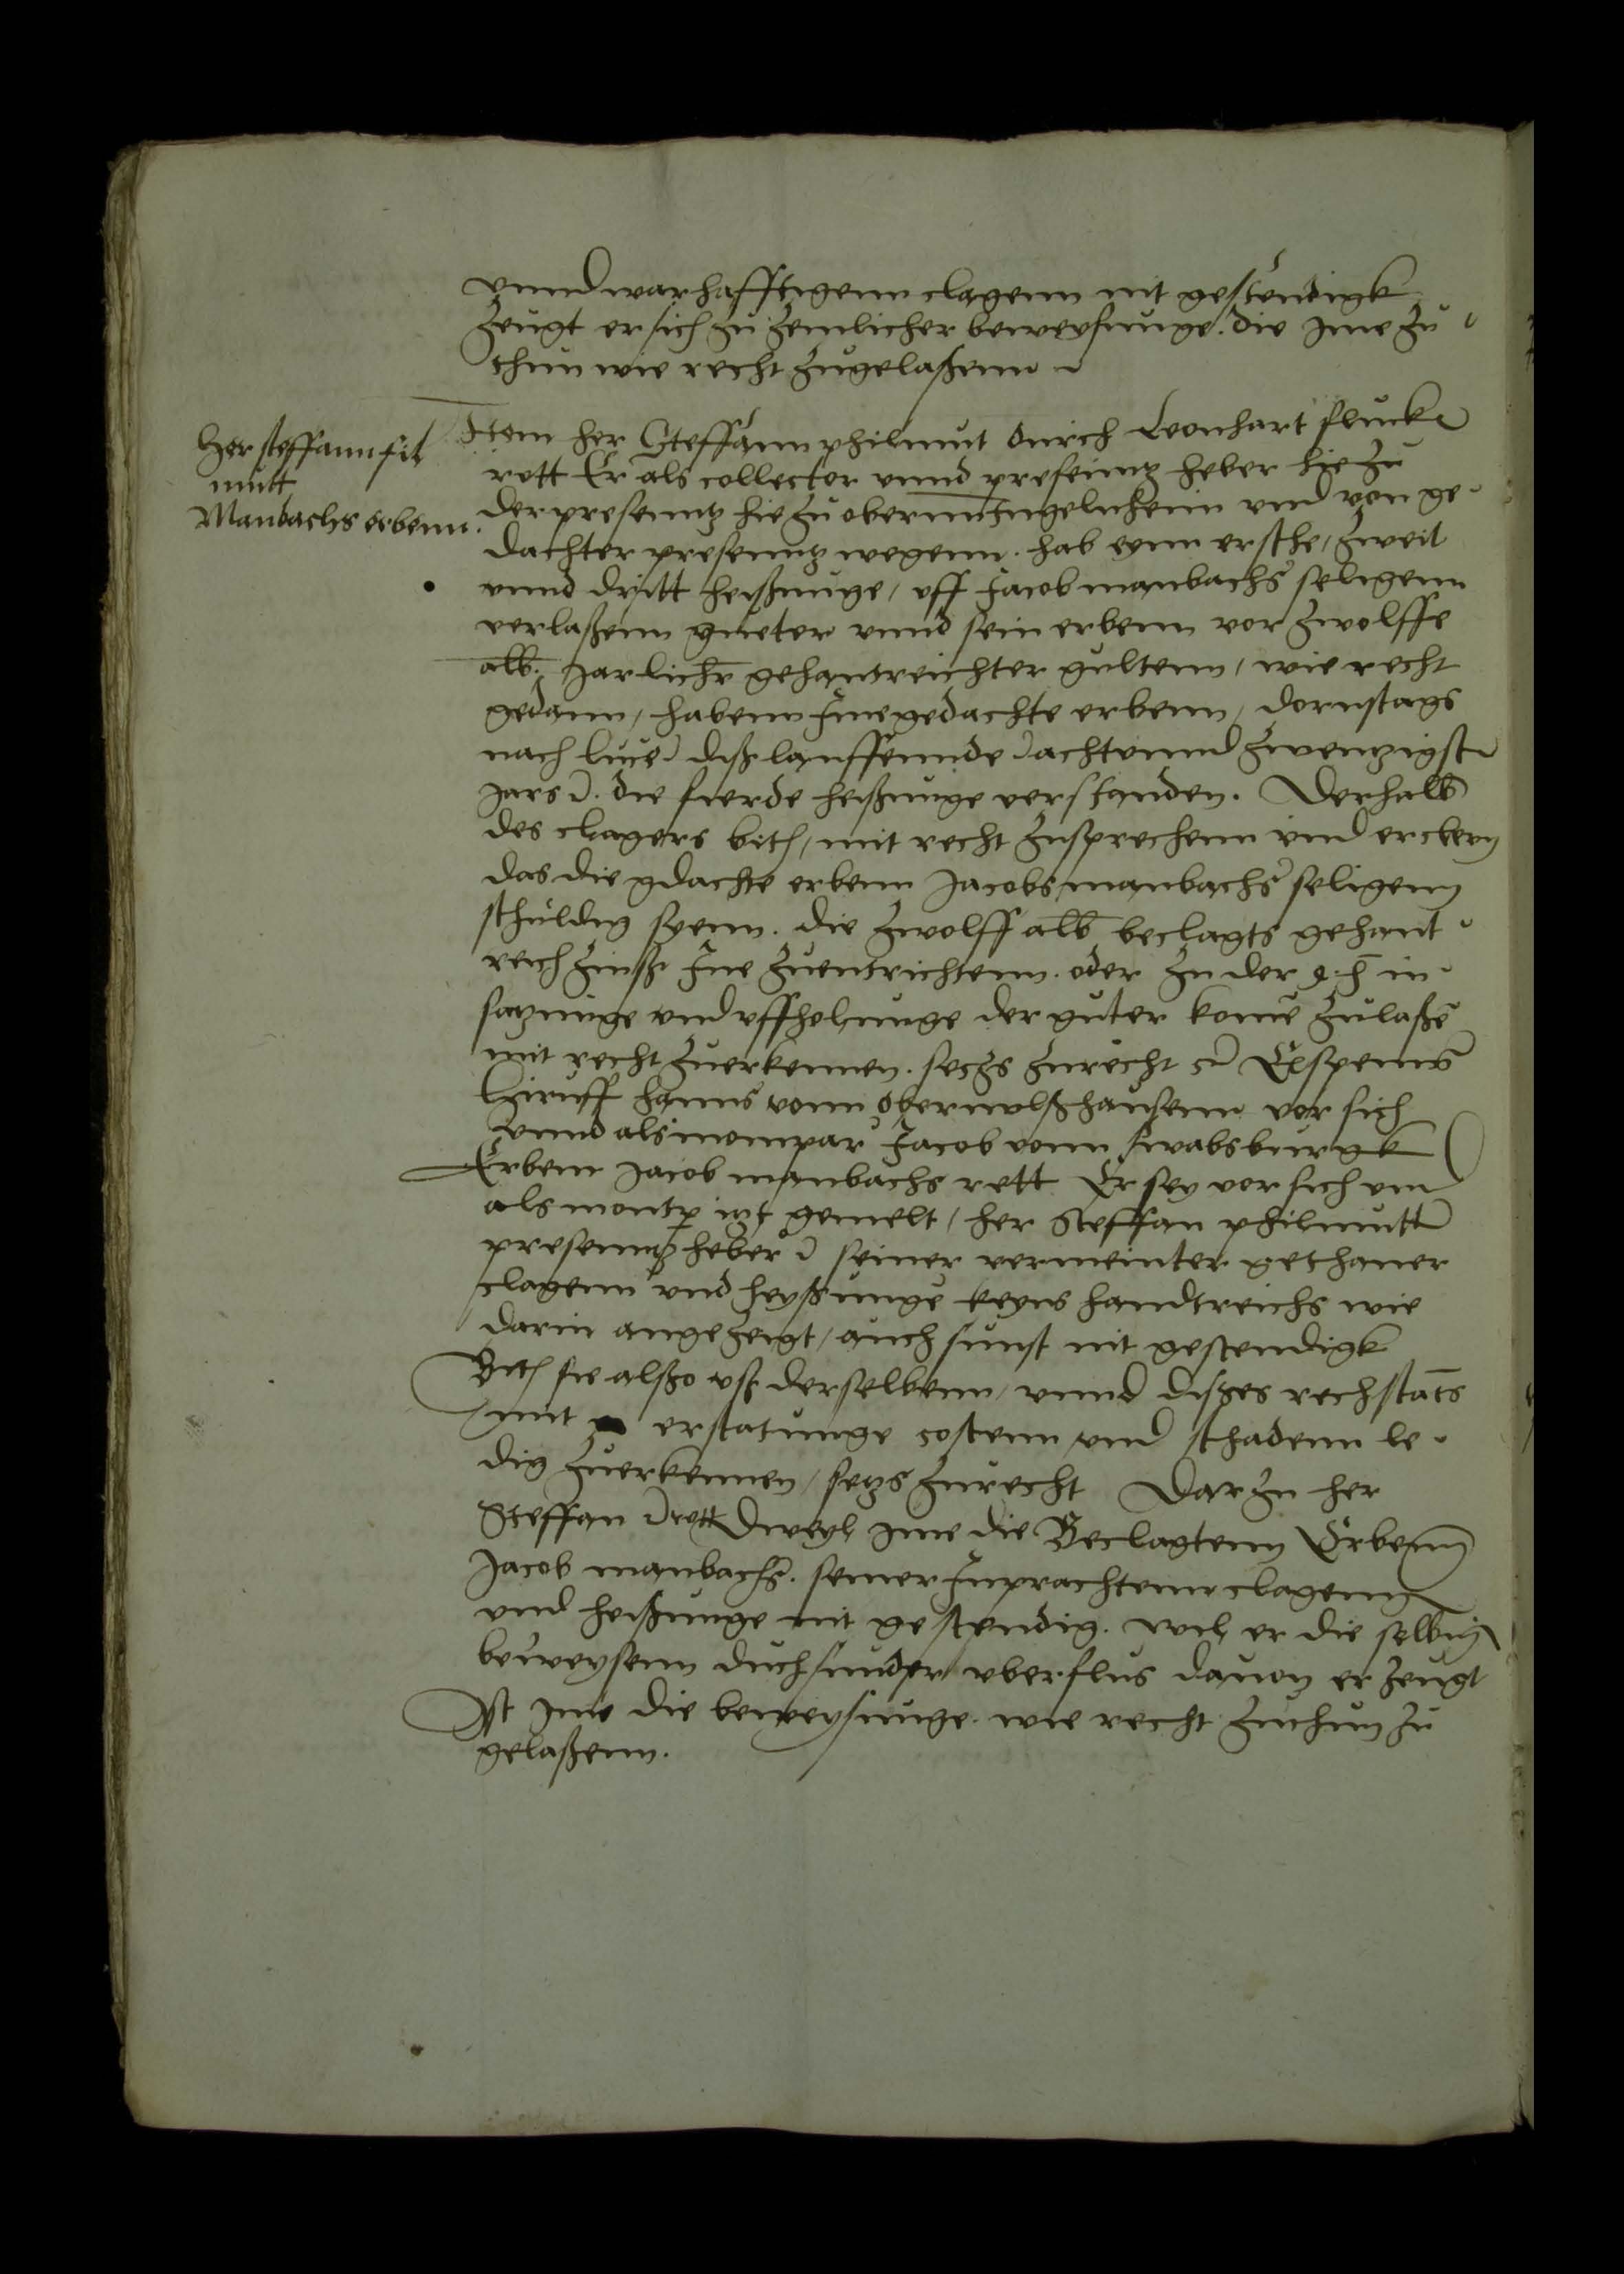 vnnd warhafftigenn clagenn nit gestendigk
Zeugt er sich zu zemlicher beweysunge. die Ime zu
thun wie recht zugelaßenn
Her steffann fil
mutt
Manbachs erbenn.
Item her Steffann philmut durch Leonhart fluck
rett Er als collector vnnd presentz heber hie zu
der presenntz hie zu obernn Ingelnheim vnd von ge
dachter presenntz wegenn. hab eynn ersthe, zweit
vnnd dritt heißunge, vff Jacob manbachs seligenn
verlaßenn gueter vnnd sein erbenn vor zwolffe
alb. Jarlicher gehantreichter gultenn, wie recht
gedann, habenn Imegedachte erbenn, dornstags
nach luce diß lauffennde achtvnnd zwentzigst
Jars. die fierde heißunge verstanden. Derhalb
des clagers bith, mit recht zusprechenn vnnd erclern
das die gdachte erbenn Jacobs manbachs seligenn
schuldig syenn. die zwolff alb beclagts gehant
reich Zinß Ine zuentrichtenn. oder zu der in
satzunge vnd vffholunge der guter kome zulaße
mit recht zuerkennen. setzs zurecht Expens
Hiruff hanns vonn obernwlßhausenn vor sich
vnnd als mompar Jacob vonn swabsburgk
Erbenn Jacob manbachs rett Er sey vor sich vnd
als montp itzt gemelt, her Steffan philmutt
presentz heber seiner vermeinter gethaner
clagenn vnd heyßunge keyns handtreichs wie
darin angezeigt, auch sunst nit gestendigk
Bith sie alßo vß derselbenn, vnnd dißes rechstats
mit erstatunge costenn vnd schadenn le
dig zuerkennen, setzs zurecht Dar zu her
Steffan rett Dweyl ime die Beclagtenn Erbenn
Jacob manbachs. seiner Inprachtenn clagenn
vnd heißunge nit gestendig. wil er die selbig
beweysenn duch sunder vberflus dauon er zeugt
Ist ime die beweysunge. wie recht zuthun zu
gelaßenn.